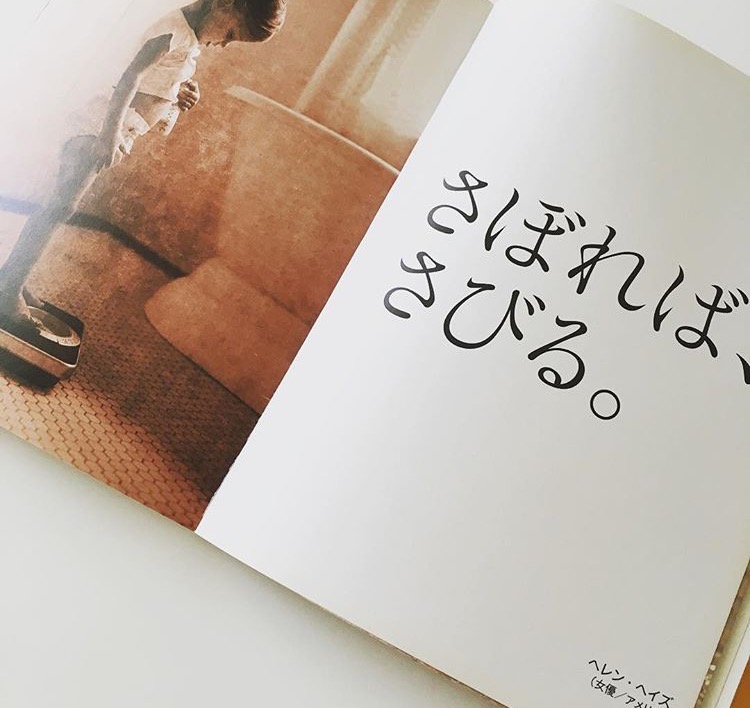 さぼれば、
さびる。
ヘレン・ヘイズ
(女優/アメリ